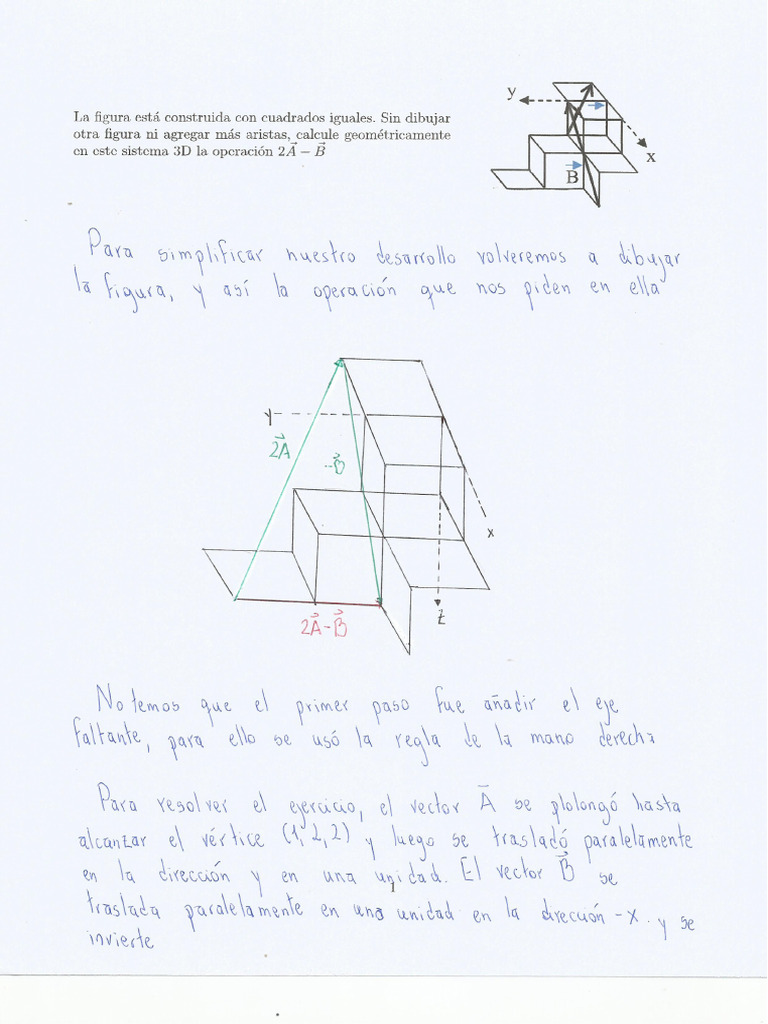 La figura está construida con cuadrados iguales. Sin dibujar
otra figura ni agregar más aristas, calcule geométricamente
en este sistema 3D la operación 2A⃗ − B⃗
y
x
B
Para simplificar nuestro desarrollo volveremos a dibujar
la figura, y así la operación que nos piden en ella
Y
2A⃗
-B⃗
x
z
2A⃗-B⃗
Notemos que el primer paso fue añadir el eje
faltante, para ello se usó la regla de la mano derecha
Para resolver el ejercicio, el vector A⃗ se plolongó hasta
alcanzar el vértice (1,2,2) y luego se trasladó paralelamente
en la dirección y en una unidad. El vector B⃗ se
traslada paralelamente en una unidad en la dirección -x. y se
invierte